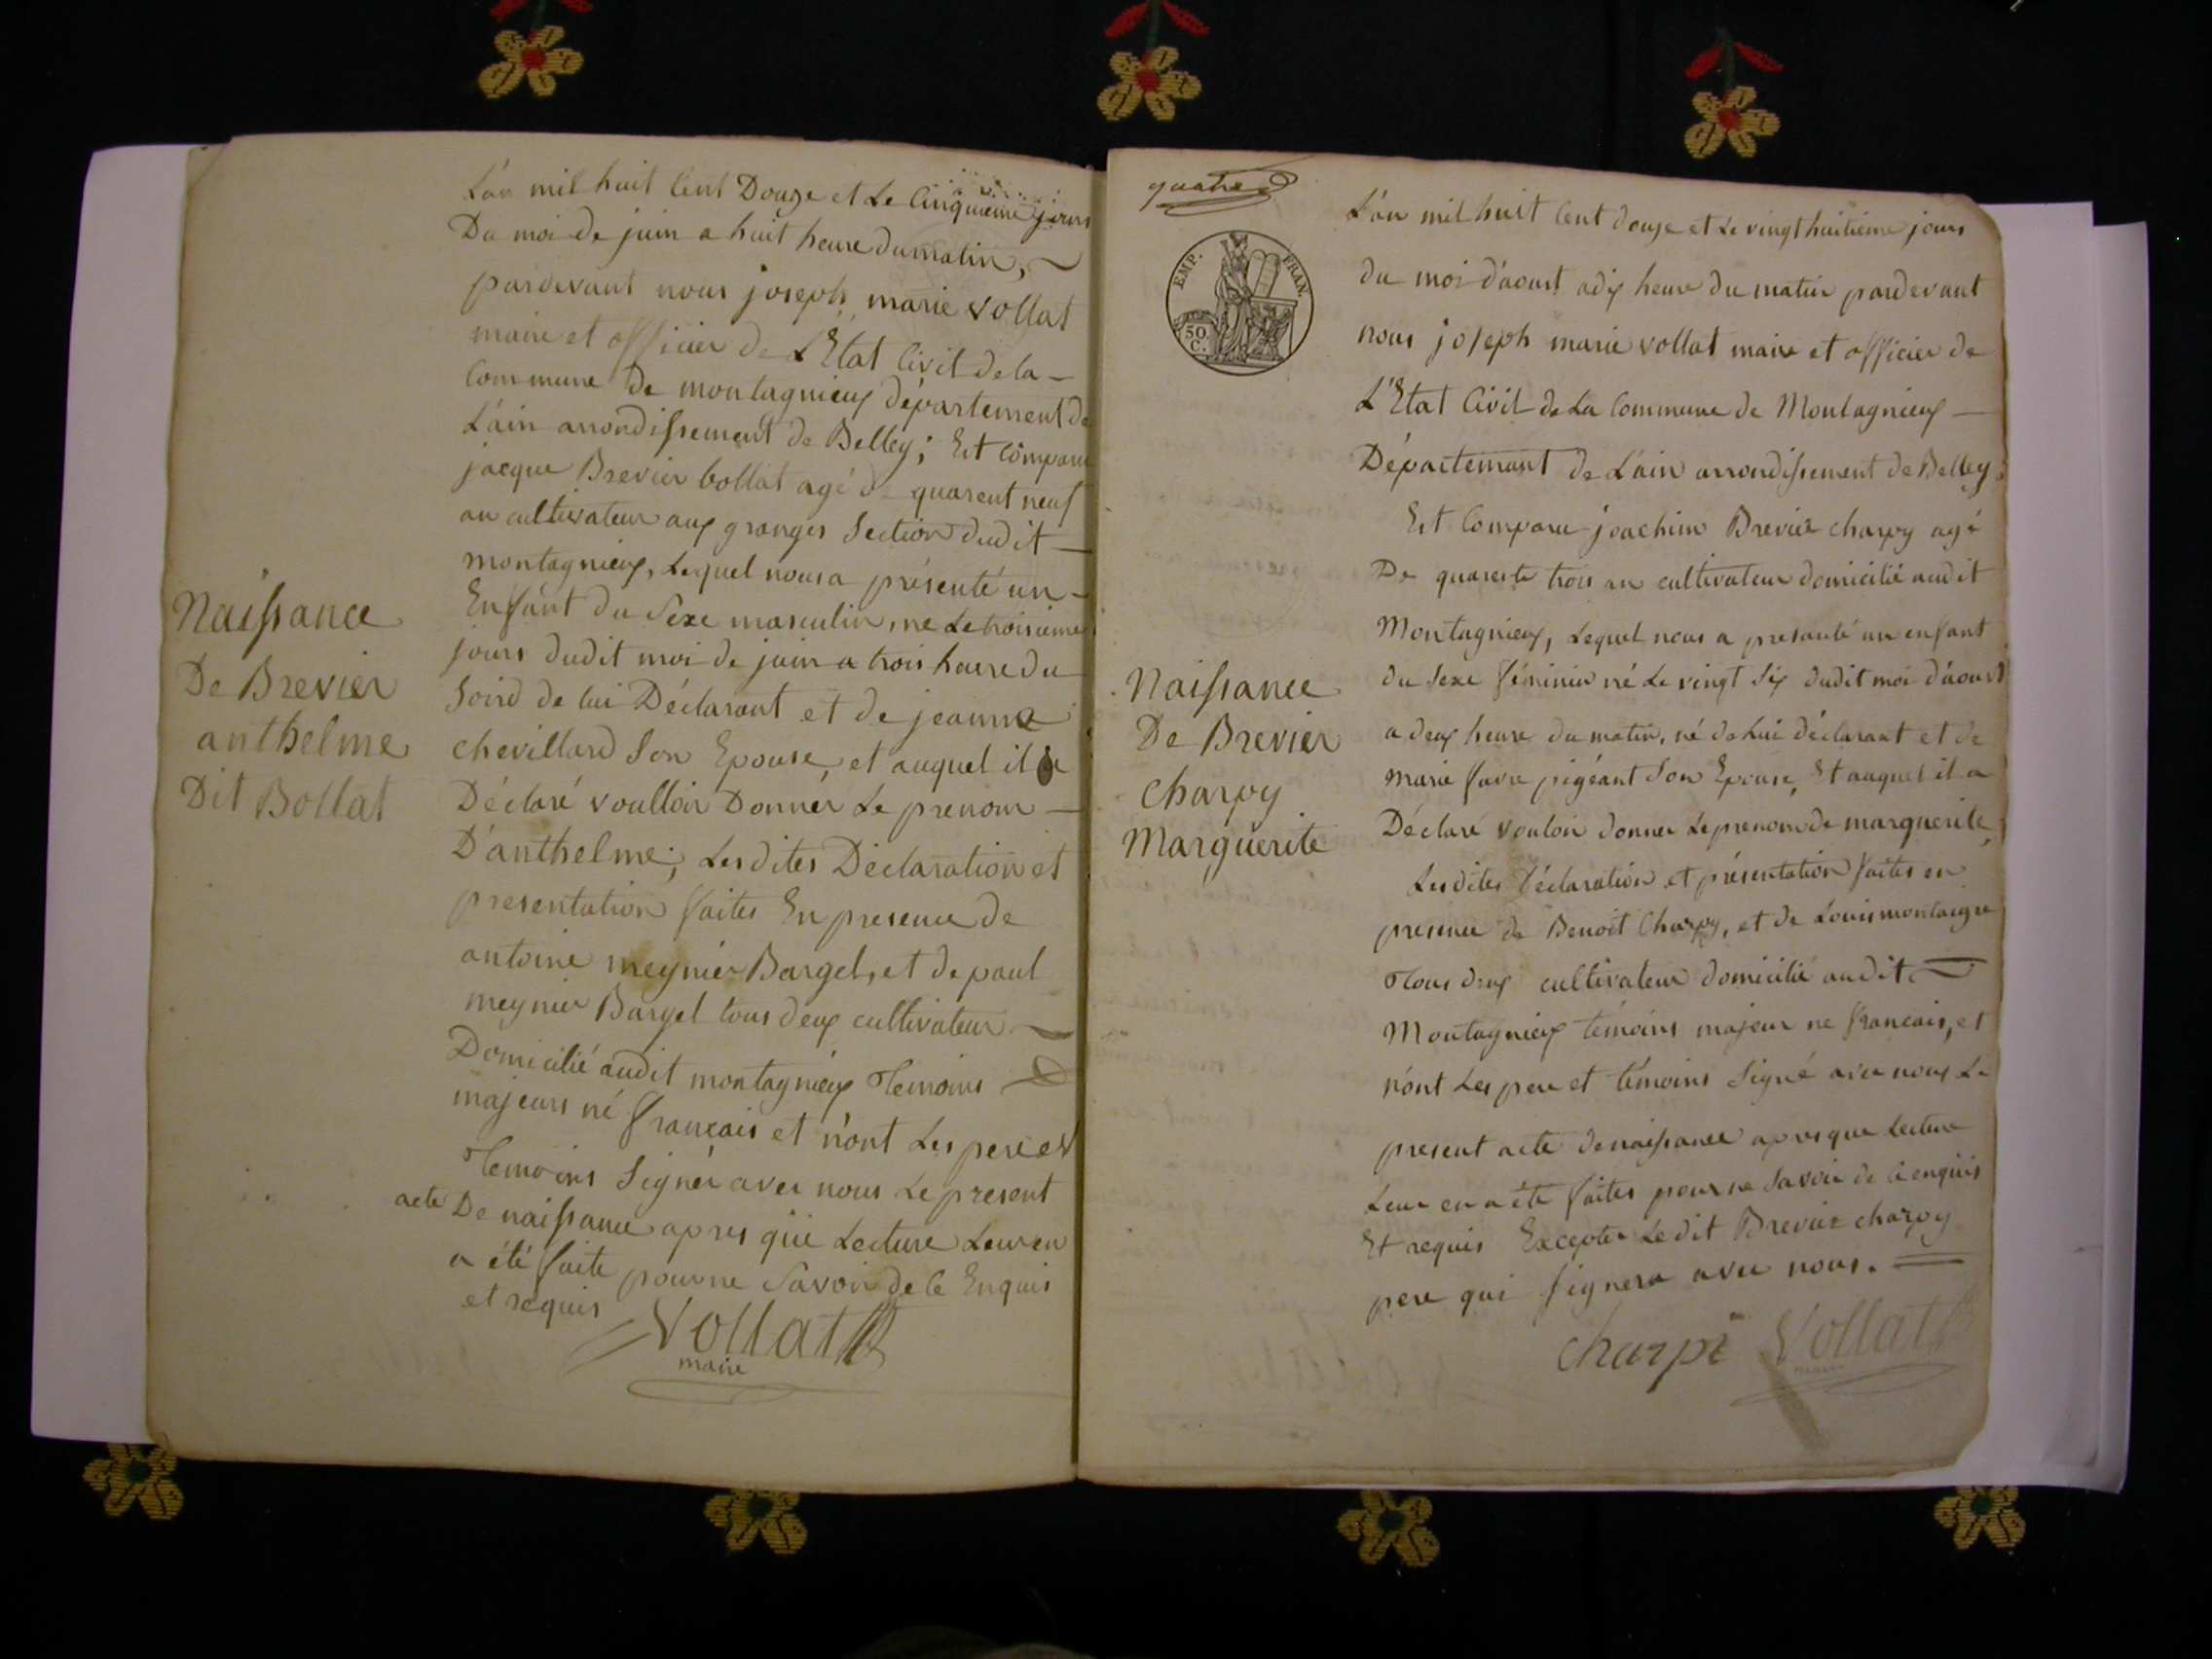 L'an mil huit Cent Douze et Le Cinquieme jours
Du moi de juin a huit heure du matin,
pardevant nous joseph marie vollat
maire et officier de L'Etat Civil de la
Commune de montagnieux département de
L'ain arrondissement de Belley; Est Comparu
jacque Brevier bollat agé de quarent neuf
an cultivateur aux granges Section dudit
montagnieux, Lequel nous a présenté un
Enfant du Sexe masculin, né Le troisieme
jours dudit moi de juin a trois heure du
Soird de lui Déclarant et de jeanne
chevillard Son Epouse, et auquel il a
Déclaré voulloir Donner Le prenom
D'anthelme; Lesdites Déclaration et
presentation faites En presence de
antoine meynier Bargel, et de paul
meynier Bargel tous deux cultivateur
Domicilié audit montagnieux Temoins
majeurs né français et n'ont Les pere et
Temoins Signér avec nous Le present
acte De naissance apres que Lecture Leur en
a été faite pour ne Savoir de Ce Enquis
et requis
Vollat
maire
Naissance
De Brevier
anthelme
Dit Bollat
quatre
EMP. FRAN.
50
C.
L'an mil huit Cent douze et Le vingt huitieme jours
du moi d'aoust a dix heure du matin pardevant
nous joseph marie vollat maire et officier de
L'Etat Civil de La Commune de Montagnieux
Département de L'ain arrondissement de Belley
Est Comparu joachim Brevier charpy agé
De quarente trois an cultivateur domicilié audit
Montagnieux, Lequel nous a presanté un enfant
du Sexe féminin né Le vingt Six dudit moi d'aoust
a deux heure du matin, né de Lui déclarant et de
marie favre pigéant Son Epouse, Et auquel il a
Déclaré vouloir donner Le prenom de marguerite,
Lesdites Déclaration et présentation faites en
presence de Benoit Charpy, et de Louis montaigre
Tous deux cultivateur domicilié audit
Montagnieux témoins majeur né francais, et
n'ont Les pere et témoins Signé avec nous Le
present acte de naissance apres que Lecture
Leur en a été faites pour ne Savoir de Ce enquis
Et requis Excepter Ledit Brevier charpy
pere qui Signera avec nous.
charpi Vollat
Naissance
De Brevier
Charpy
Marguerite